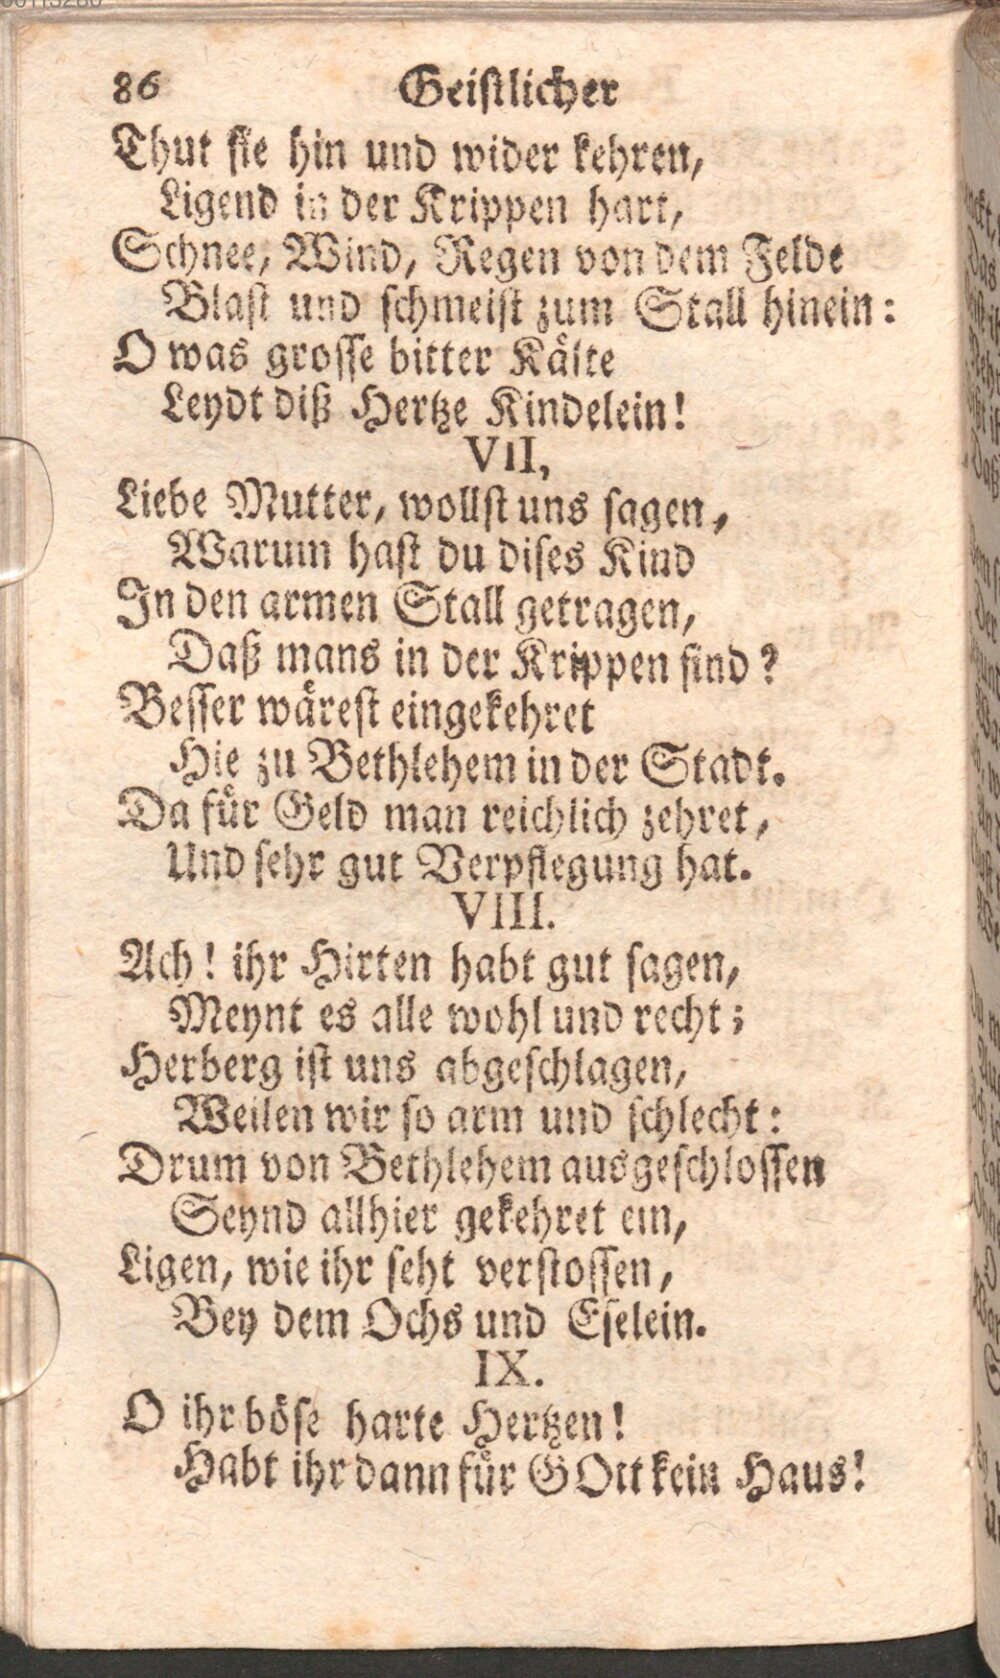 86 Geistlicher
Thut sie hin und wider kehren,
Ligend in der Krippen hart,
Schnee, Wind, Regen von dem Felde
Blast und schmeist zum Stall hinein:
O was grosse bitter Kälte
Leydt diß Hertze Kindelein!
VII,
Liebe Mutter, wollst uns sagen,
Warum hast du dises Kind
In den armen Stall getragen,
Daß mans in der Krippen find?
Besser wärest eingekehret
Hie zu Bethlehem in der Stadt.
Da für Geld man reichlich zehret,
Und sehr gut Verpflegung hat.
VIII.
Ach! ihr Hirten habt gut sagen,
Meynt es alle wohl und recht;
Herberg ist uns abgeschlagen,
Weilen wir so arm und schlecht:
Drum von Bethlehem ausgeschlossen
Seynd allhier gekehret ein,
Ligen, wie ihr seht verstossen,
Bey dem Ochs und Eselein.
IX.
O ihr böse harte Hertzen!
Habt ihr dann für GOtt kein Haus!